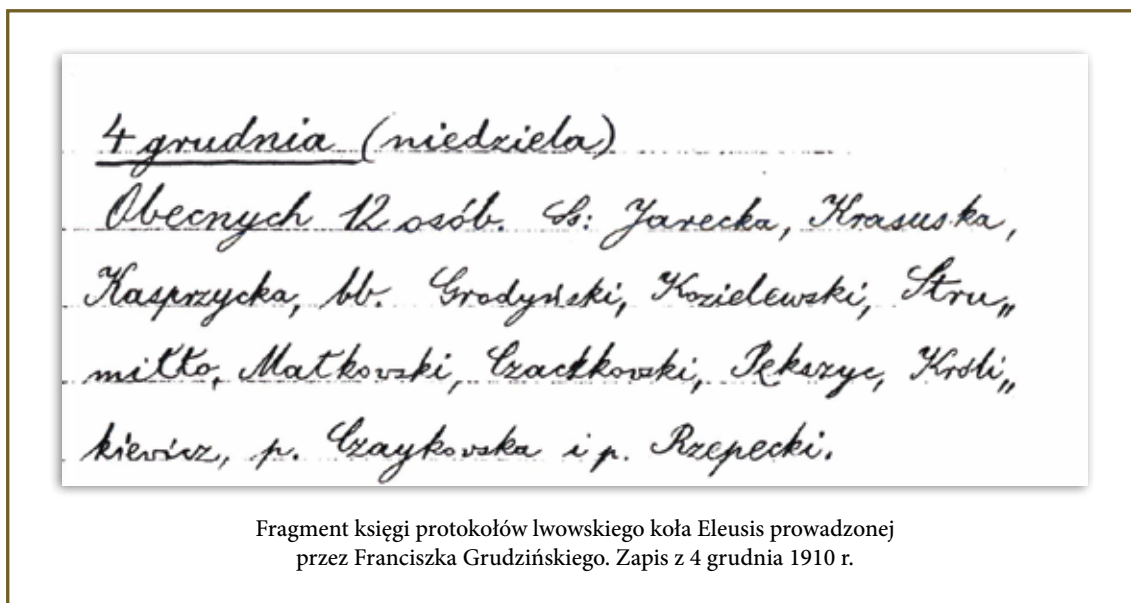 4 grudnia (niedziela)
Obecnych 12 osób. Ss: Jarecka, Krasuska,
Kasprzycka, bb. Grodyński, Kozielewski, Stru„
miłło, Małkowski, Czaćkowski, Pększyc, Króli„
kiewicz, p. Czaykowska i p. Rzepecki.
Fragment księgi protokołów lwowskiego koła Eleusis prowadzonej
przez Franciszka Grudzińskiego. Zapis z 4 grudnia 1910 r.